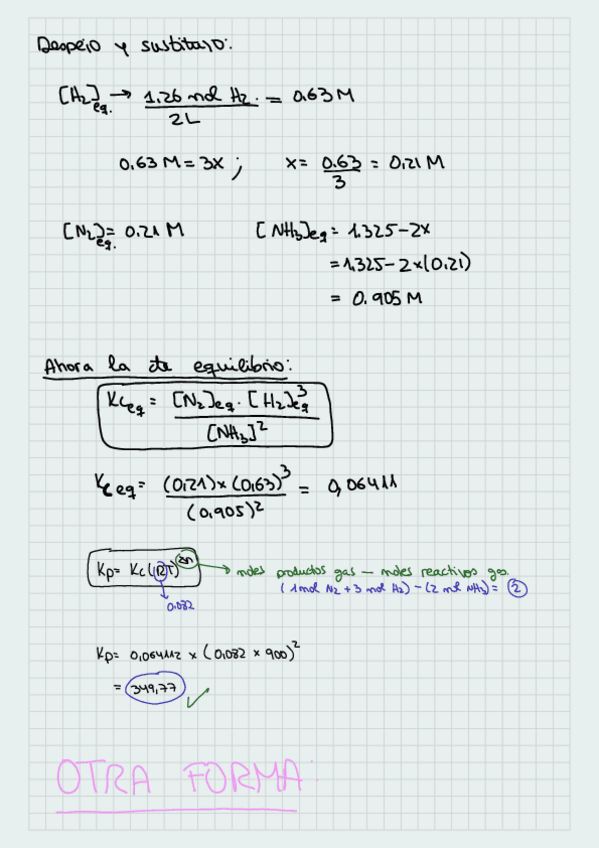 Despejo y sustituyo:
[H2]eq. → 1.26 mol H2 / 2L = 0.63 M
0.63 M = 3x ; x = 0.63 / 3 = 0.21 M
[N2]eq. = 0.21 M [NH3]eq = 1.325 - 2x
= 1.325 - 2x(0.21)
= 0.905 M
Ahora la cte de equilibrio:
Kceq = [N2]eq · [H2]eq³ / [NH3]²
Kceq = (0,21) x (0,63)³ / (0,905)² = 0,06411
Kp = Kc (RT)^Δn → moles productos gas — moles reactivos gas
(1 mol N2 + 3 mol H2) - (2 mol NH3) = 2
0.082
Kp = 0,064112 x (0,082 x 900)²
= 349,77 ✓
OTRA FORMA: